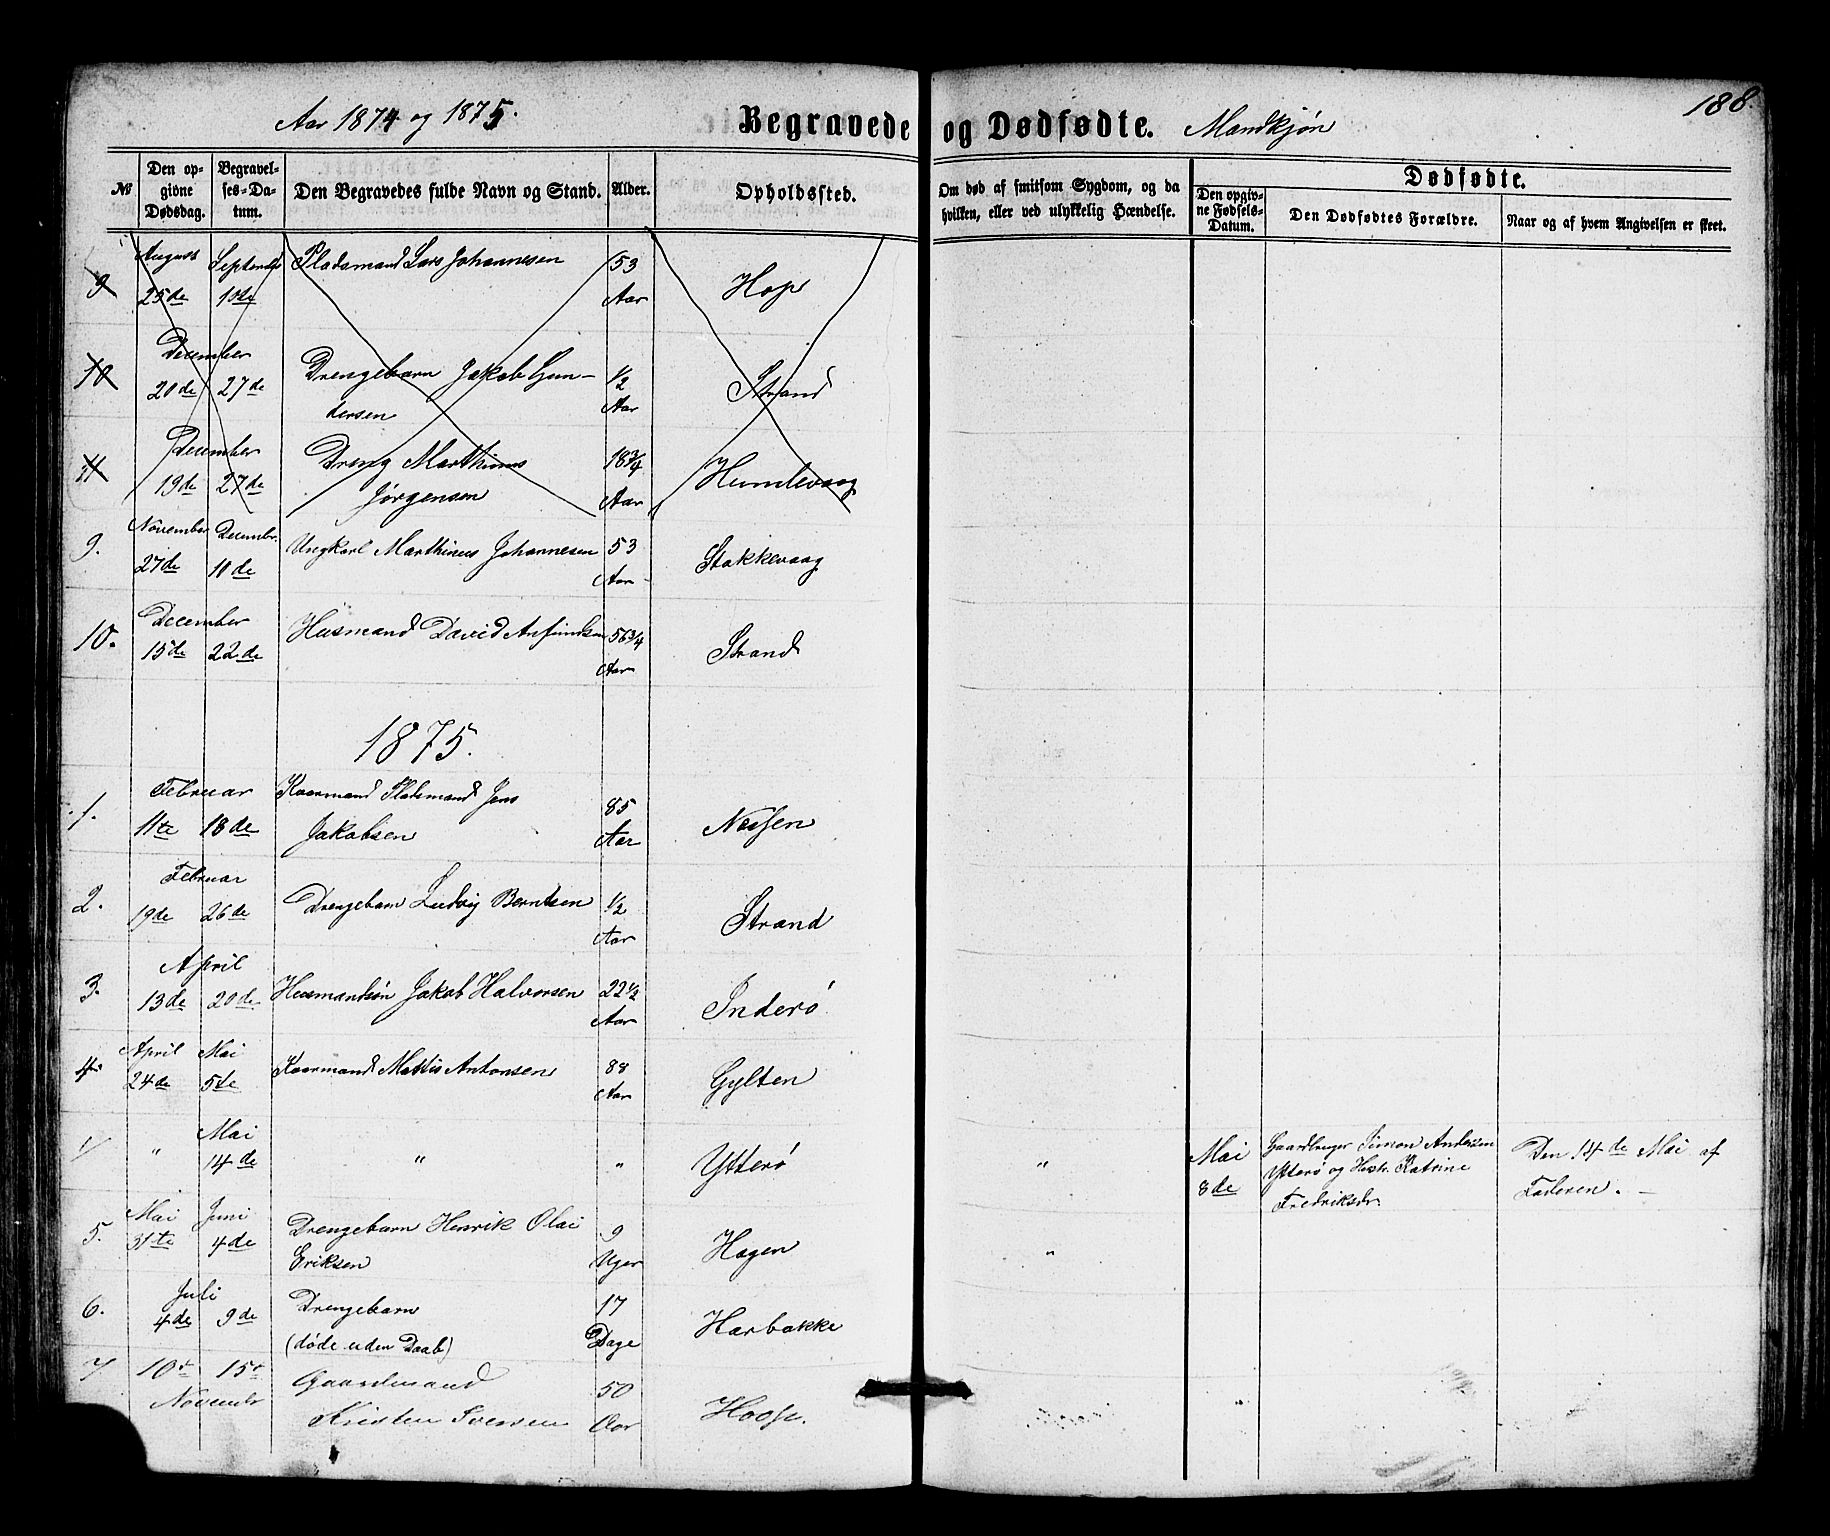 188.
Aar 1874 og 1875.
Begravede og Dødfødte. Mandkjøn
№
Den op-
givne
Dødsdag.
Begravel-
ses-Da-
tum.
Den Begravedes fulde Navn og Stand.
Alder.
Opholdssted.
Om død af smitsom Sygdom, og da
hvilken, eller ved ulykkelig Hændelse.
Dødfødte.
Den opgiv-
ne Fødsels-
Datum.
Den Dødfødtes Forældre.
Naar og af hvem Angivelsen er skeet.
August September Pladsmand Lars Johannesen 53
9 25de 10de Aar Hop
December
10 20de 27de Drengebarn Jakob Gun- ½ Strand
dersen Aar
December Dreng Marthinus 18¾
11 19de 27de Jørgensen Aar Humlevaag
November Decembr.
9. 27de 10de Ungkarl Marthinus Johannesen 53 Stokkevaag
Aar
December
10. 15de 22de Husmand David Anfindsen 56¾ Strand
Aar
1875.
Februar Kaarmand Pladsmand Jens 85
1. 11te 18de Jakobsen Aar Nessen
Februar
2. 19de 26de Drengebarn Ludvig Berntsen ½ Strand
Aar
April
3. 13de 20de Husmandsøn Jakob Halvorsen 22½ Inderø
Aar
April Mai
4. 24de 5te Kaarmand Mattis Antonsen 88 Gylten
Aar
Mai
1/ " 14de " " Ytterø " Mai Gaardbruger Simon Andersen Den 14de Mai af
8de Ytterø og Hustr. Katrine Faderen. —
Fredriksdr.
Mai Juni
5. 31te 4de Drengebarn Henrik Olai 9 Hagen "
Eriksen Uger
Juli
6. 4de 9de Drengebarn 17 Harbakke
(døde uden Daab) Dage
7 10de 15de Gaardmand 50
November Kristen Svensen Aar Hoop.